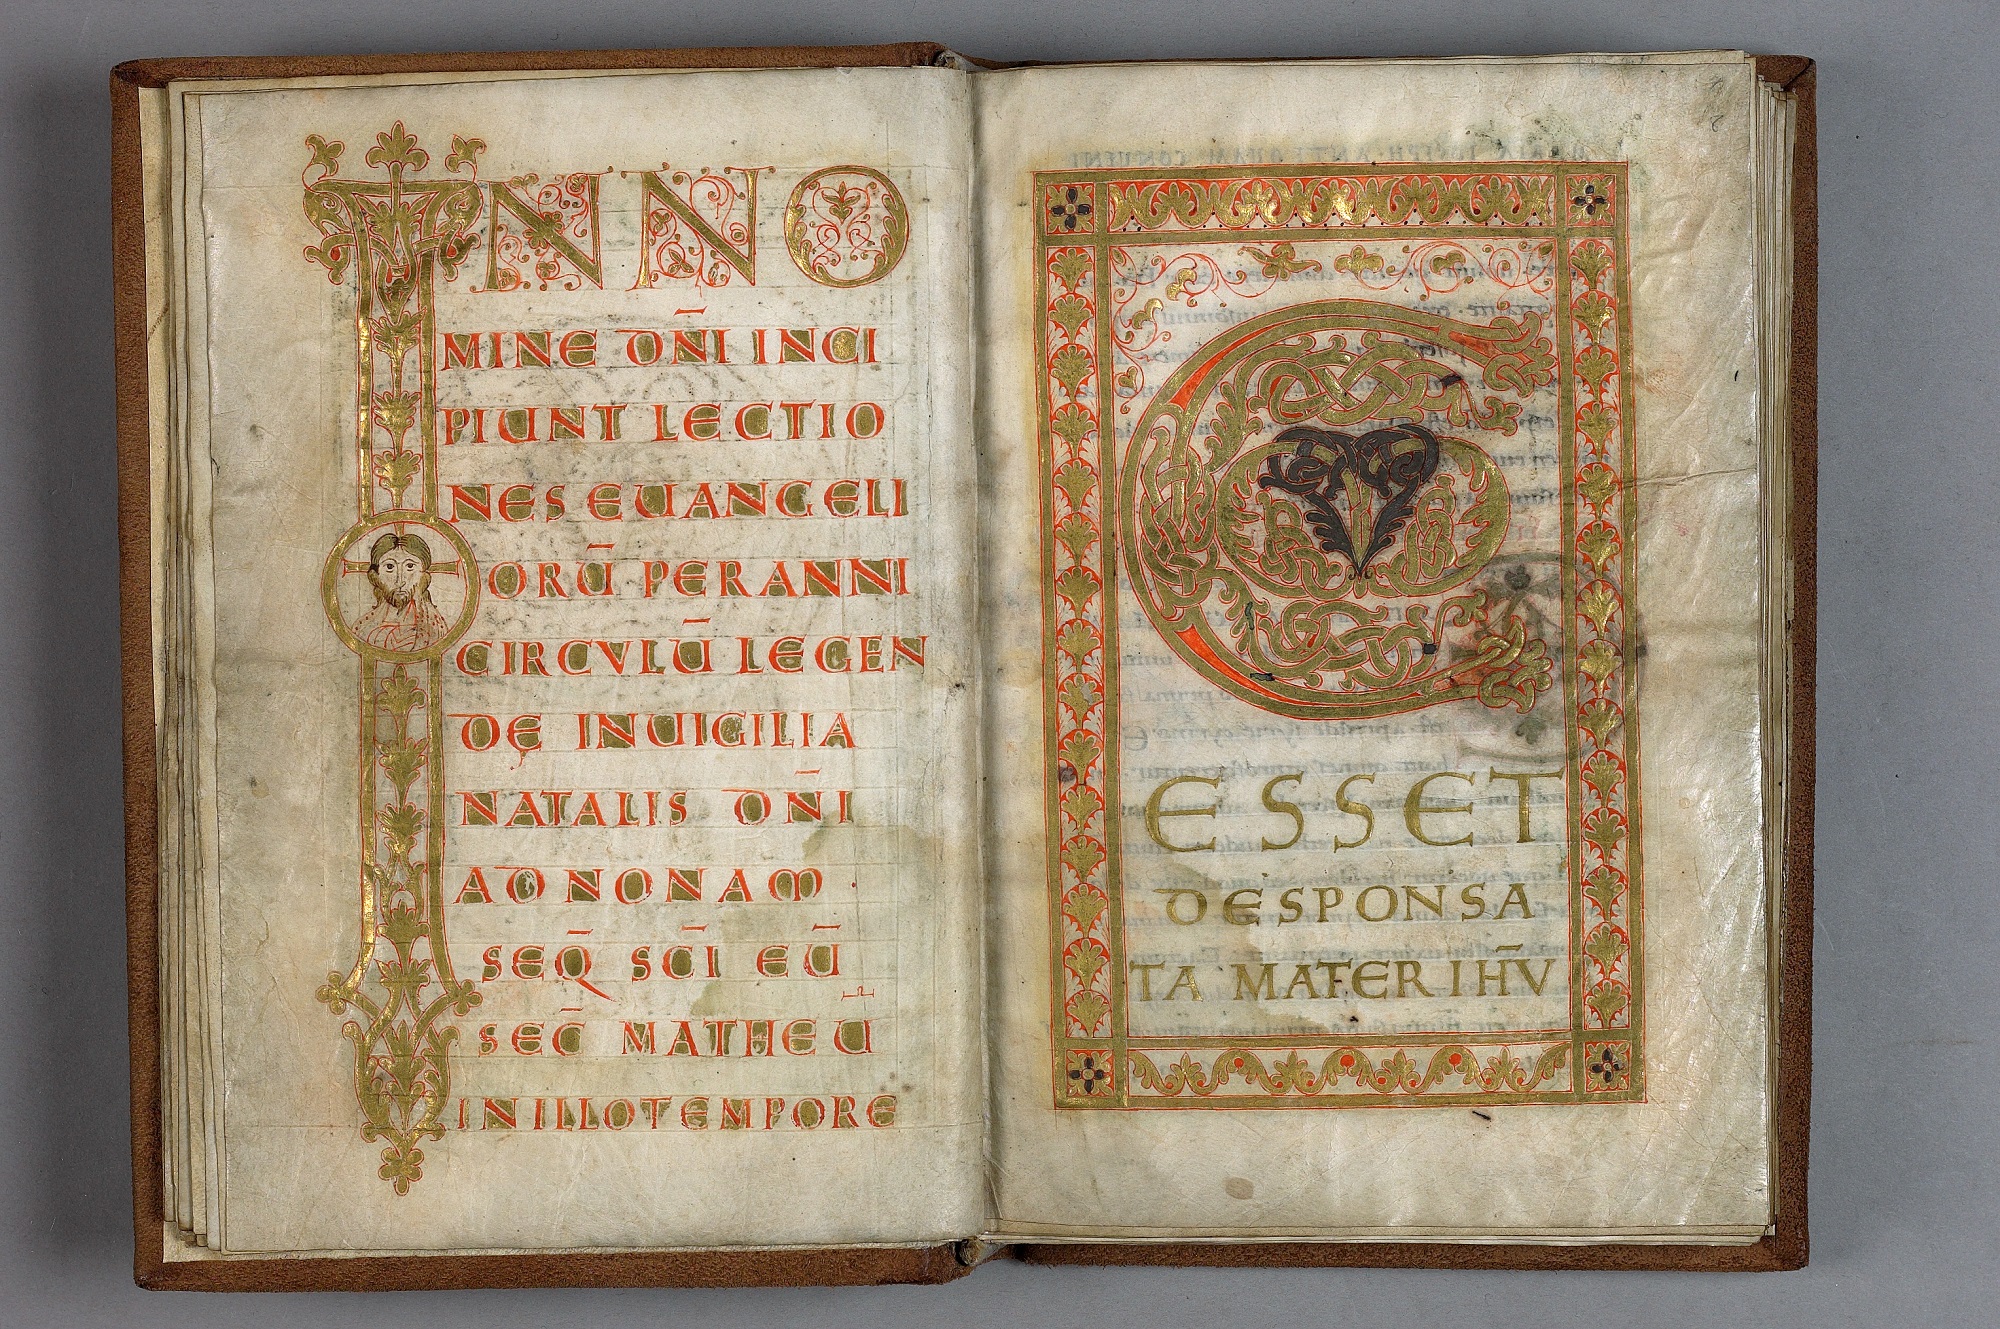 IN NO
MINE DN̄I INCI
PIUNT LECTIO
NES EUANGELI
ORŪ PER ANNI
CIRCVLŪ LEGEN
DĘ IN UIGILIA
NATALIS DN̄I
AD NONAM
SEQ̄ SC̄I EŪ
SEC̄ MATHEU
IN ILLO TEMPORE
CU
ESSET
DESPONSA
TA MATER IHV̄